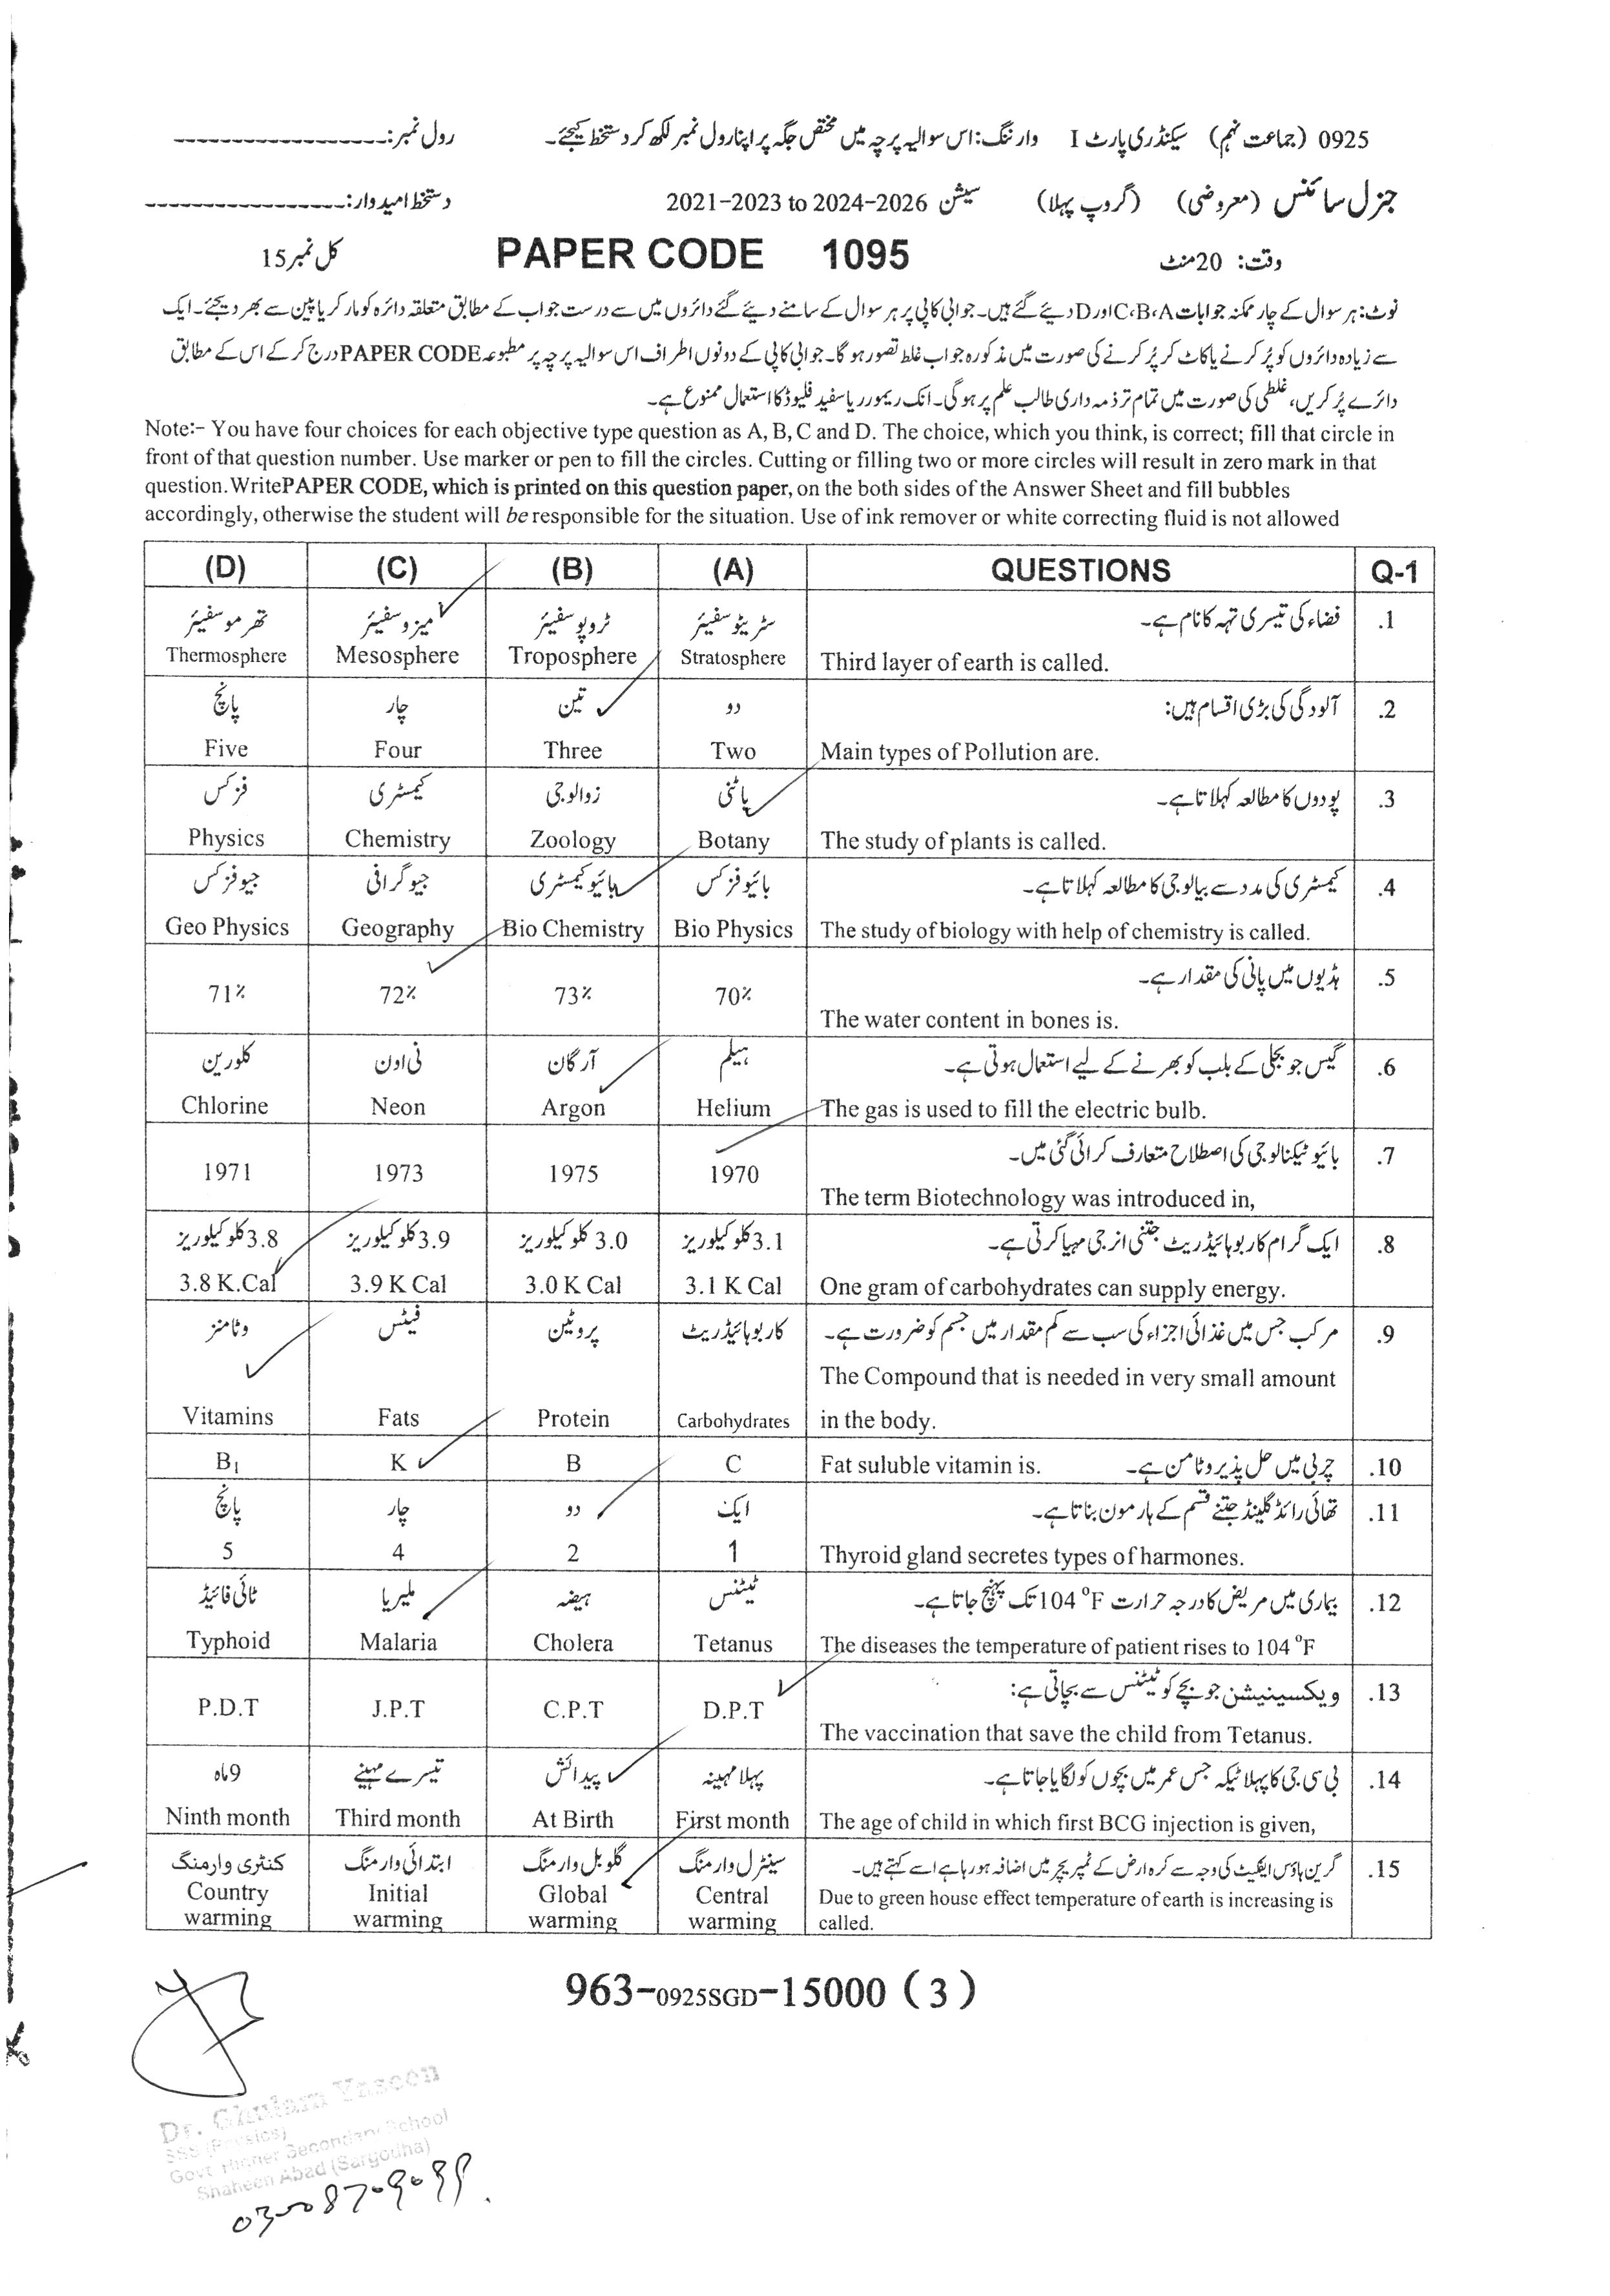 0925 (جماعت نہم) سیکنڈری پارٹ I وارننگ: اس سوالیہ پرچہ میں مختص جگہ پر اپنا رول نمبر لکھ کر دستخط کیجئے۔ رول نمبر:
جنرل سائنس (معروضی) (گروپ پہلا) سیشن 2021-2023 to 2024-2026 دستخط امیدوار:
وقت: 20 منٹ PAPER CODE 1095 کل نمبر 15
نوٹ: ہر سوال کے چار ممکنہ جوابات C،B،A اور D دیئے گئے ہیں۔ جوابی کاپی پر ہر سوال کے سامنے دیئے گئے دائروں میں سے درست جواب کے مطابق متعلقہ دائرہ کو مارکر یا پین سے بھر دیجئے۔ ایک
سے زیادہ دائروں کو پُر کرنے یا کاٹ کر پُر کرنے کی صورت میں مذکورہ جواب غلط تصور ہو گا۔ جوابی کاپی کے دونوں اطراف اس سوالیہ پرچہ پر مطبوعہ PAPER CODE درج کر کے اس کے مطابق
دائرے پُر کریں، غلطی کی صورت میں تمام تر ذمہ داری طالب علم پر ہوگی۔ انک ریمور ریا سفید فلیوڈ کا استعمال ممنوع ہے۔
Note:- You have four choices for each objective type question as A, B, C and D. The choice, which you think, is correct; fill that circle in
front of that question number. Use marker or pen to fill the circles. Cutting or filling two or more circles will result in zero mark in that
question.WritePAPER CODE, which is printed on this question paper, on the both sides of the Answer Sheet and fill bubbles
accordingly, otherwise the student will be responsible for the situation. Use of ink remover or white correcting fluid is not allowed
(D) (C) (B) (A) QUESTIONS Q-1
تھرموسفیئر میزوسفیئر ٹروپوسفیئر سٹریٹوسفیئر فضاء کی تیسری تہہ کا نام ہے۔ .1
Thermosphere Mesosphere Troposphere Stratosphere Third layer of earth is called.
پانچ چار تین دو آلودگی کی بڑی اقسام ہیں: .2
Five Four Three Two Main types of Pollution are.
فزکس کیمسٹری زوالوجی باٹنی پودوں کا مطالعہ کہلاتا ہے۔ .3
Physics Chemistry Zoology Botany The study of plants is called.
جیوفزکس جیوگرافی بائیوکیمسٹری بائیوفزکس کیمسٹری کی مدد سے بیالوجی کا مطالعہ کہلاتا ہے۔ .4
Geo Physics Geography Bio Chemistry Bio Physics The study of biology with help of chemistry is called.
71% 72% 73% 70% ہڈیوں میں پانی کی مقدار ہے۔ .5
The water content in bones is.
کلورین نی اون آرگان ہیلیم گیس جو بجلی کے بلب کو بھرنے کے لیے استعمال ہوتی ہے۔ .6
Chlorine Neon Argon Helium The gas is used to fill the electric bulb.
1971 1973 1975 1970 بائیو ٹیکنالوجی کی اصطلاح متعارف کرائی گئی میں۔ .7
The term Biotechnology was introduced in,
3.8 کلو کیلوریز 3.9 کلو کیلوریز 3.0 کلو کیلوریز 3.1 کلو کیلوریز ایک گرام کاربوہائیڈریٹ جتنی انرجی مہیا کرتی ہے۔ .8
3.8 K.Cal 3.9 K Cal 3.0 K Cal 3.1 K Cal One gram of carbohydrates can supply energy.
وٹامنز فیٹس پروٹین کاربوہائیڈریٹ مرکب جس میں غذائی اجزاء کی سب سے کم مقدار میں جسم کو ضرورت ہے۔ .9
The Compound that is needed in very small amount
Vitamins Fats Protein Carbohydrates in the body.
B₁ K B C Fat suluble vitamin is. چربی میں حل پذیر وٹامن ہے۔ .10
پانچ چار دو ایک تھائی رائڈ گلینڈ جتنے قسم کے ہارمون بناتا ہے۔ .11
5 4 2 1 Thyroid gland secretes types of harmones.
ٹائی فائیڈ ملیریا ہیضہ ٹیٹنس بیماری میں مریض کا درجہ حرارت 104 °F تک پہنچ جاتا ہے۔ .12
Typhoid Malaria Cholera Tetanus The diseases the temperature of patient rises to 104 °F
P.D.T J.P.T C.P.T D.P.T ویکسینیشن جو بچے کو ٹیٹنس سے بچاتی ہے: .13
The vaccination that save the child from Tetanus.
9 ماہ تیسرے مہینے پیدائش پہلا مہینہ بی سی جی کا پہلا ٹیکہ جس عمر میں بچوں کو لگایا جاتا ہے۔ .14
Ninth month Third month At Birth First month The age of child in which first BCG injection is given,
کنٹری وارمنگ ابتدائی وارمنگ گلوبل وارمنگ سینٹرل وارمنگ گرین ہاؤس ایفیکٹ کی وجہ سے کرہ ارض کے ٹمپریچر میں اضافہ ہو رہا ہے اسے کہتے ہیں۔ .15
Country Initial Global Central Due to green house effect temperature of earth is increasing is
warming warming warming warming called.
963-0925SGD-15000 (3)
Dr. Ghulam Yaseen
SSS (Physics)
Govt. Higher Secondary School
Shaheen Abad (Sargodha)